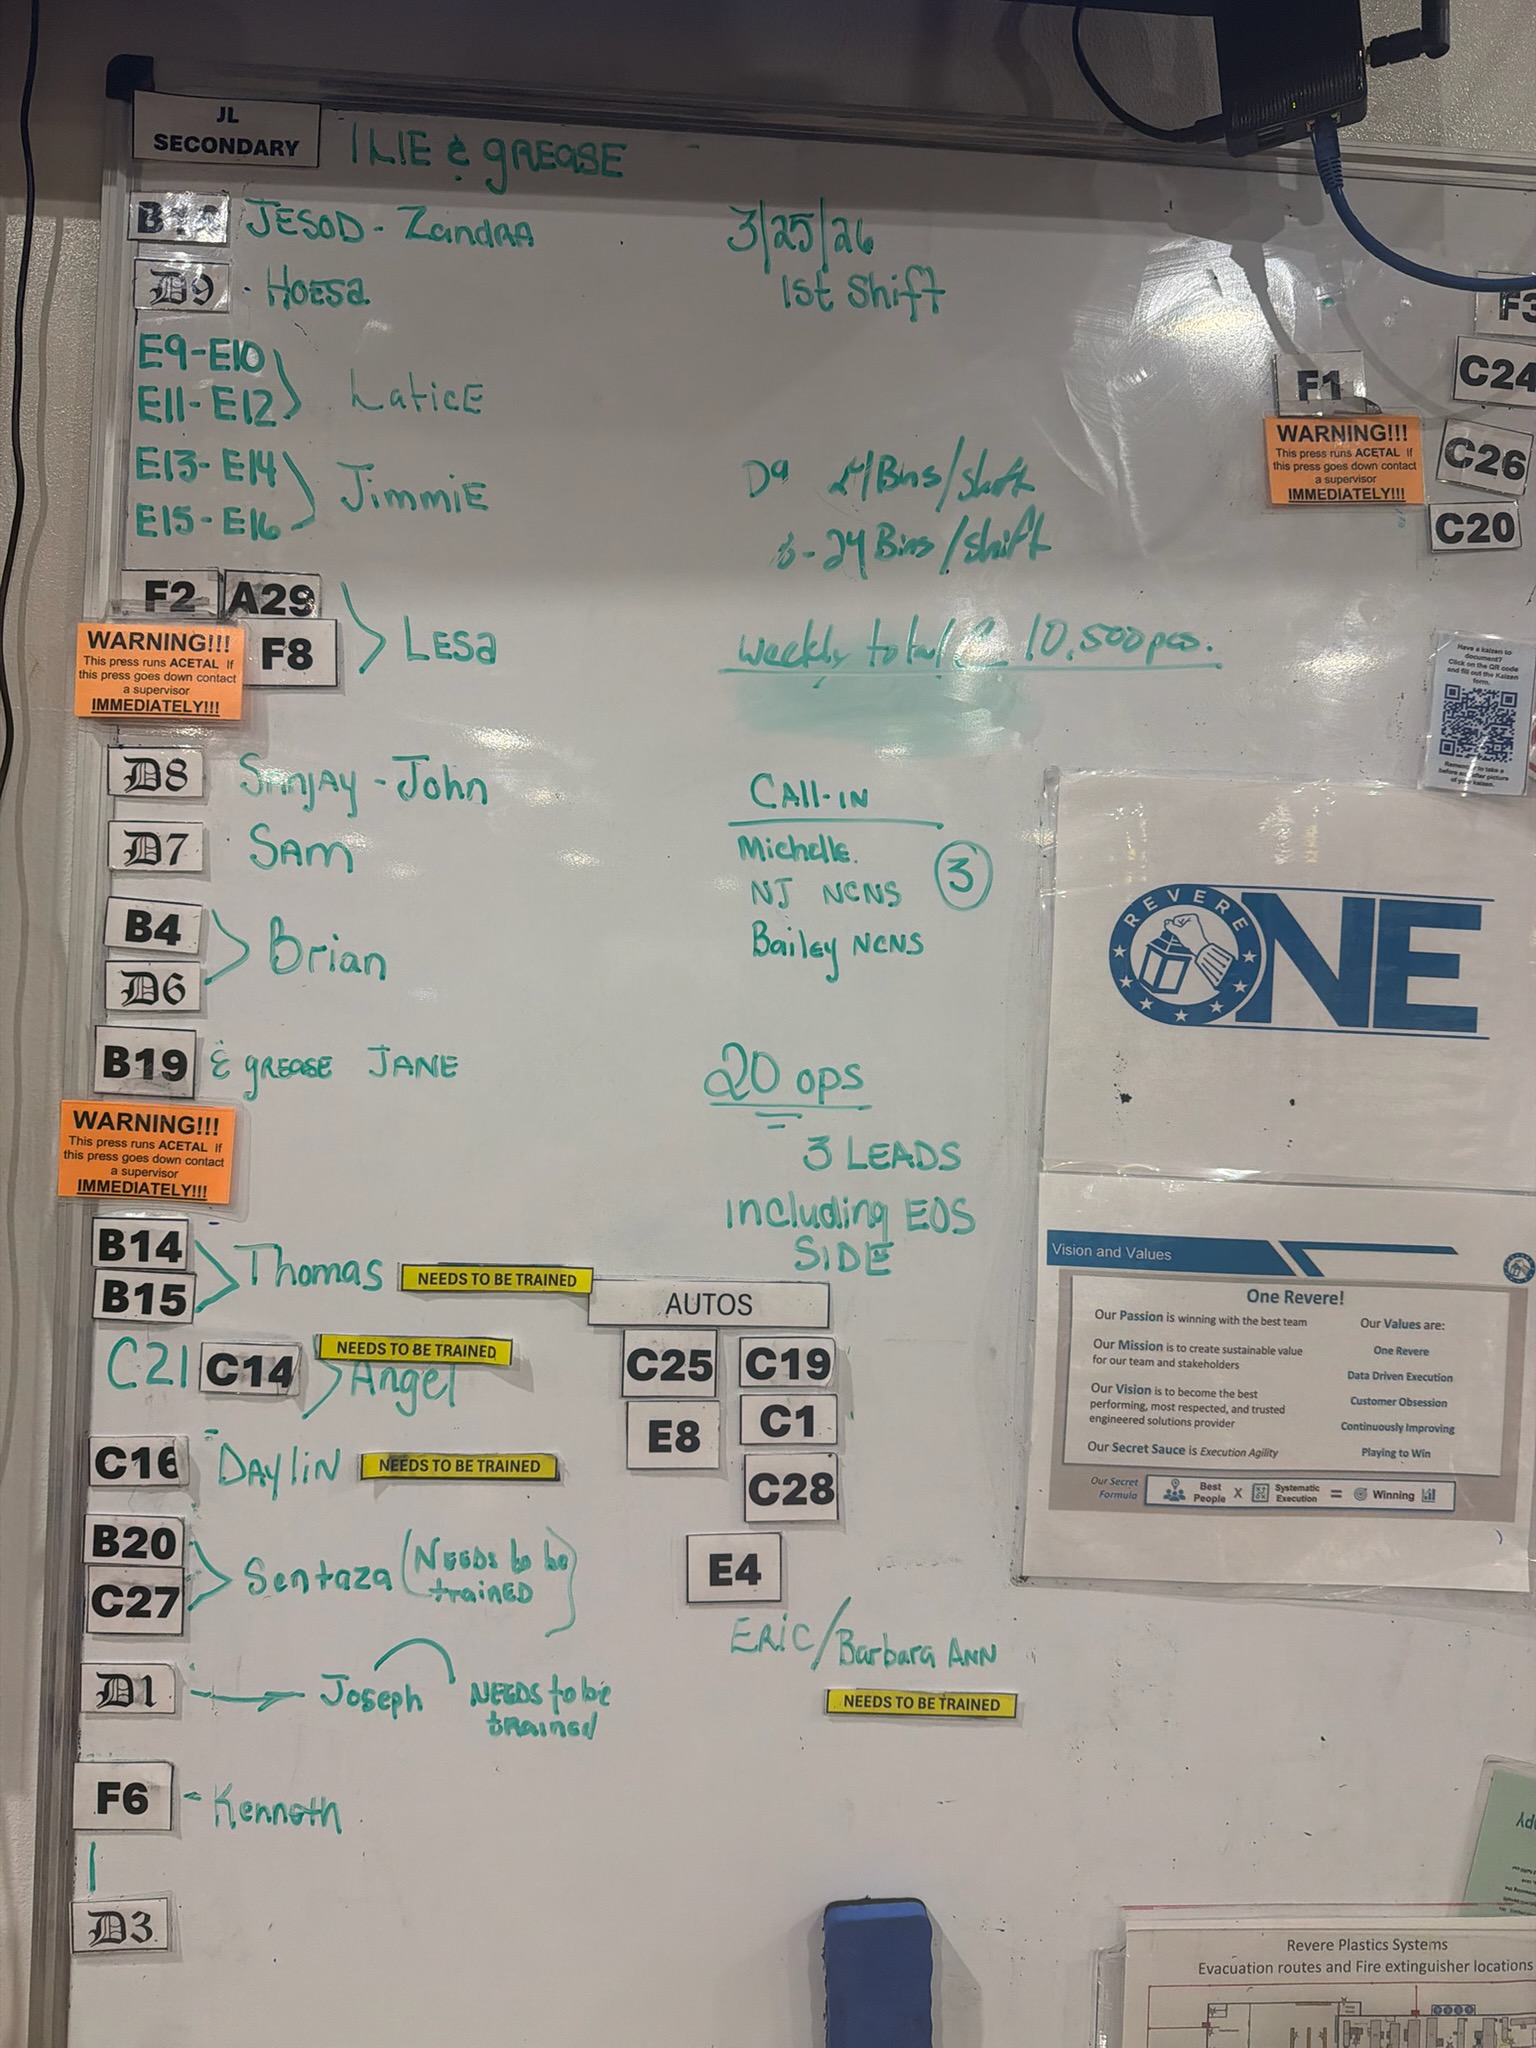 JL
SECONDARY
& GREASE
JESOD - ZandRA
3/25/26
D9 - HOESa
1st Shift
E9-E10
E11-E12
LaticE
E13-E14
E15-E16
JimmiE
D9 Bins/shift
24 Bins/shift
F2 A29
F8
LESa
WARNING!!!
This press runs ACETAL If
this press goes down contact
a supervisor
IMMEDIATELY!!!
weekly total 10,500 pcs.
F1
WARNING!!!
This press runs ACETAL If
this press goes down contact
a supervisor
IMMEDIATELY!!!
F3
C24
C26
C20
Have a kaizen to
document?
Click on the QR code
and fill out the Kaizen
form.
Remember to take a
before and after picture
of your kaizen.
D8 Sanjay - John
D7 SAM
B4
D6
Brian
CALL-IN
Michelle.
NJ NCNS
Bailey NCNS
3
B19 & GREASE JANE
WARNING!!!
This press runs ACETAL If
this press goes down contact
a supervisor
IMMEDIATELY!!!
20 OPS
3 LEADS
including EOS
SIDE
B14
B15
Thomas NEEDS TO BE TRAINED
C21 C14 Angel NEEDS TO BE TRAINED
C16 DAYliN NEEDS TO BE TRAINED
B20
C27
Sentaza (NEEDS to be
trainED)
D1 Joseph NEEDS to be
tRainEd
F6 - Kenneth
D3
AUTOS
C25 C19
E8 C1
C28
E4
ERIC/Barbara ANN
NEEDS TO BE TRAINED
REVERE
ONE
Vision and Values
One Revere!
Our Passion is winning with the best team
Our Mission is to create sustainable value
for our team and stakeholders
Our Vision is to become the best
performing, most respected, and trusted
engineered solutions provider
Our Secret Sauce is Execution Agility
Our Values are:
One Revere
Data Driven Execution
Customer Obsession
Continuously Improving
Playing to Win
Our Secret
Formula
Best
People X Systematic
Execution = Winning
Revere Plastics Systems
Evacuation routes and Fire extinguisher locations